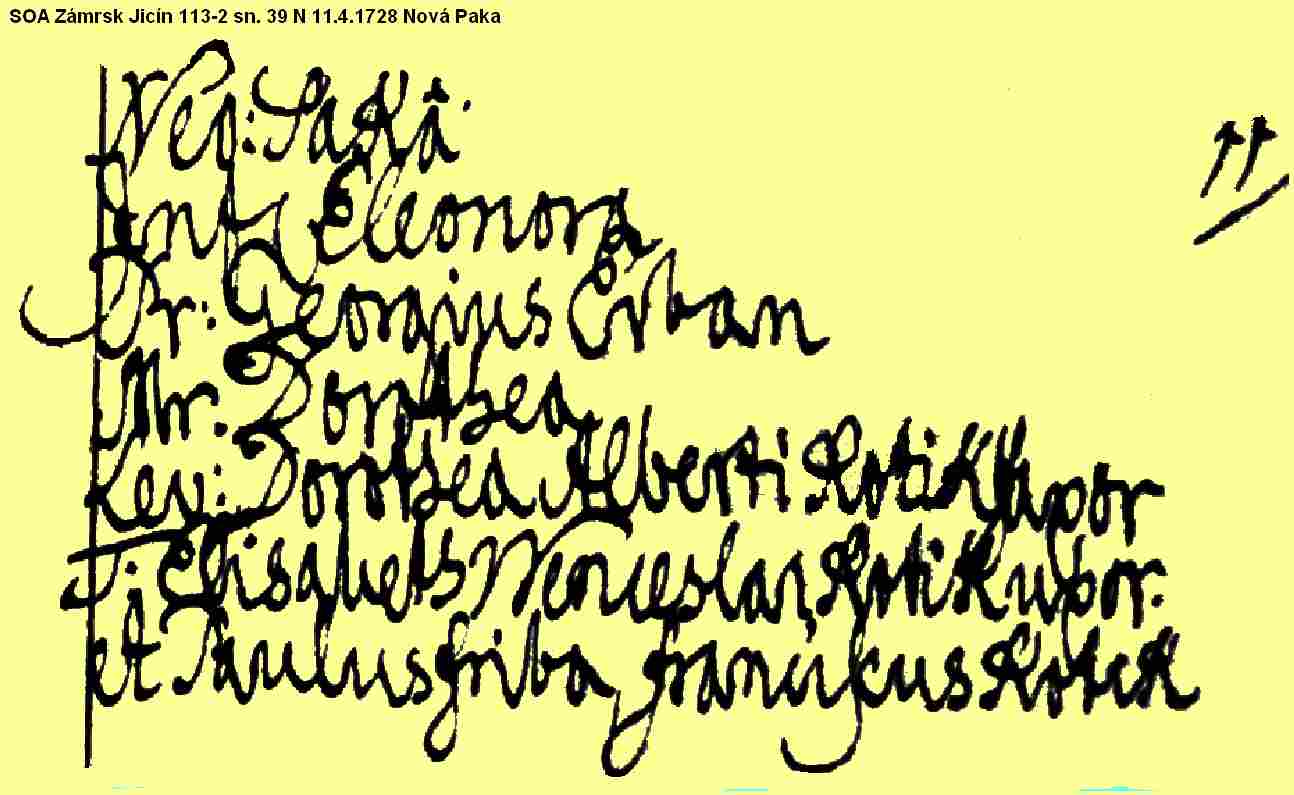 SOA Zámrsk Jicín 113-2 sn. 39 N 11.4.1728 Nová Paka
11
Neo: Paka
Inf: Eleonora
Pr: Georgius Erban
Mr. Dorothea
Lev: Dorothea Alberti Kotik Uxor
T: Elisabeth Wenceslai, Kotik uxor.
et Paulus Griba, Franciscus Kotik